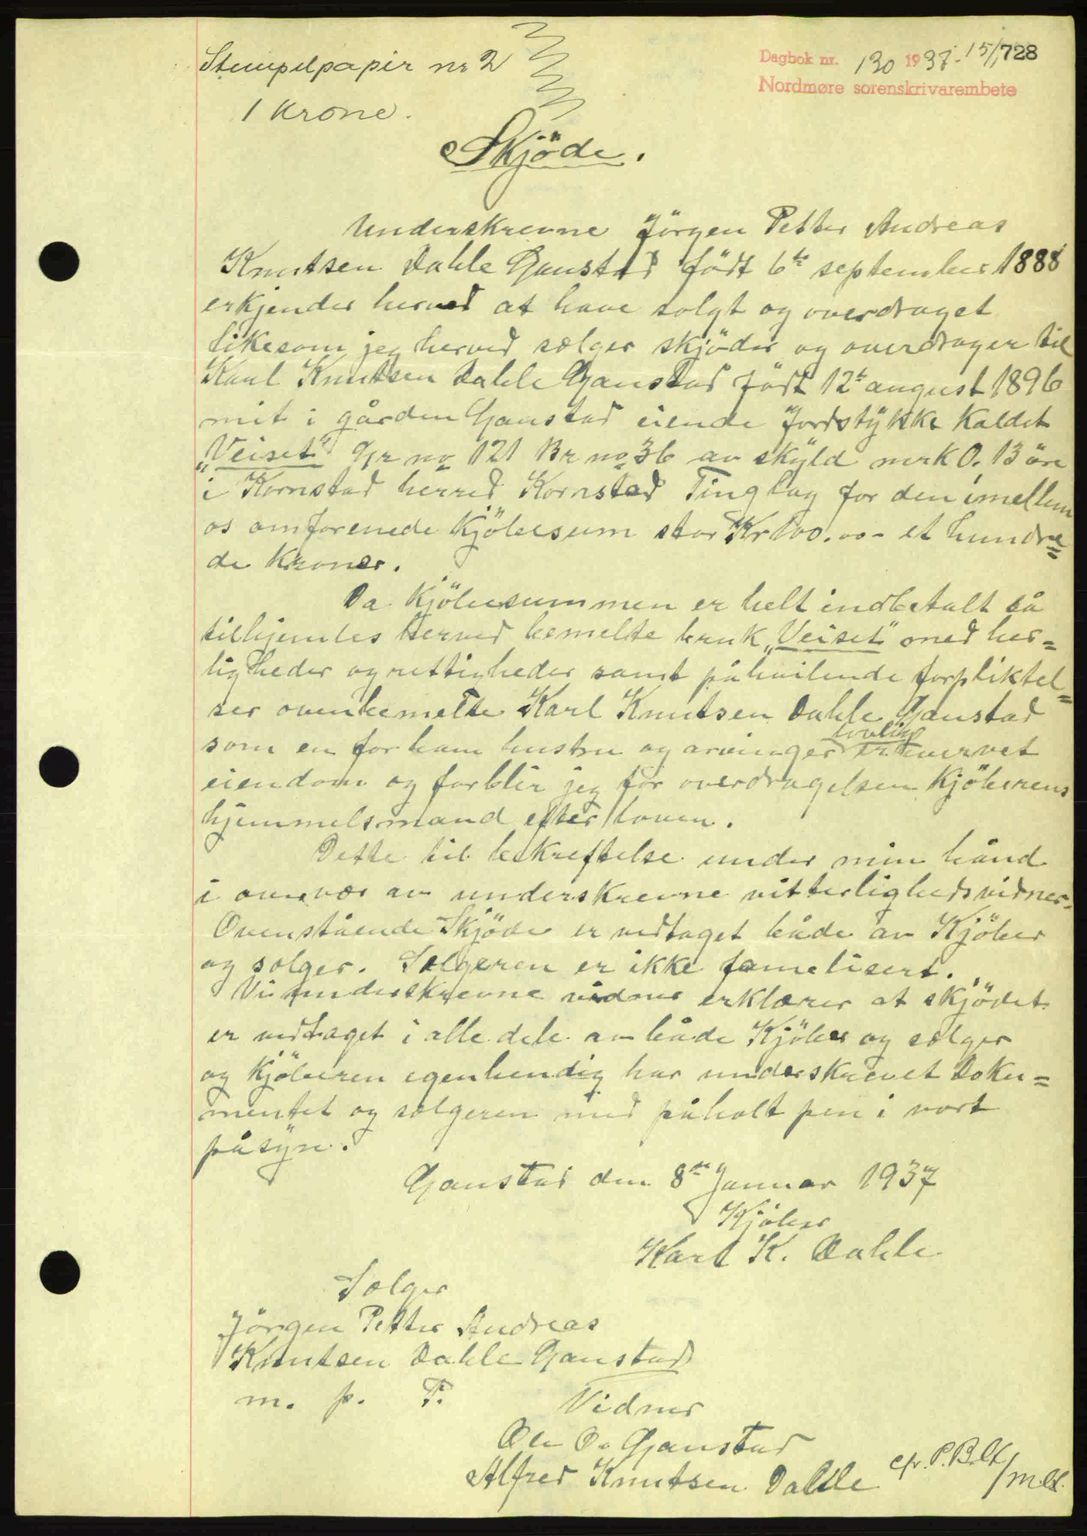 Stempelpapir nr 2
1 Krone.
Dagbok nr. 130 1937 - 15/1 728
Nordmøre sorenskrivarembete
Skjöde.
Underskrevne Jörgen Petter Andreas
Knutsen Dahle Gaustad födt 6te september 1888
erkjender herved at have solgt og overdraget
likesom jeg herved sælger skjöder og overdrager til
Karl Knutsen Dahle Gaustad födt 12te august 1896
mit i gården Gaustad eiende Jordstykke Kaldet
"Veiset" Gr no 121 Br no 36 av skyld mrk 0.13 öre
i Kornstad herred Kornstad Tinglag for den imellem
os omforenede Kjöbesum stor Kr 100.00 - et hundre=
de Kroner.
Da Kjöbesummen er helt indbetalt så
tilhjemles herved bemelte bruk "Veiset" med her=
ligheder og rettigheder samt påhvilende forpliktel=
ser ovenbemelte Karl Knutsen Dahle Gaustad
som en for ham hustru og arvinger lovlig erhvervet
eiendom og forblir jeg for overdragelsen Kjöberens
hjemmelsmand efter loven.
Dette til bekreftelse under min hånd
i overvær av underskrevne vitterlighedsvidner.
Ovenstående Skjöde er vedtaget både av Kjöber
og sælger. Sælgeren er ikke famelisert.
Vi underskrevne vidner erklærer at skjödet
er vedtaget i alle dele av både Kjöber og sælger
og Kjöberen egenhendig har underskrevet Doku=
mentet og sælgeren med påholt pen i vort
påsyn.
Gaustad den 8de Januar 1937
Kjöber
Karl K. Dahle
Sælger
Jörgen Petter Andreas
Knutsen Dahle Gaustad
m. p. P.
Vidner
Ole O. Gaustad
Alfred Knutsen Dahle